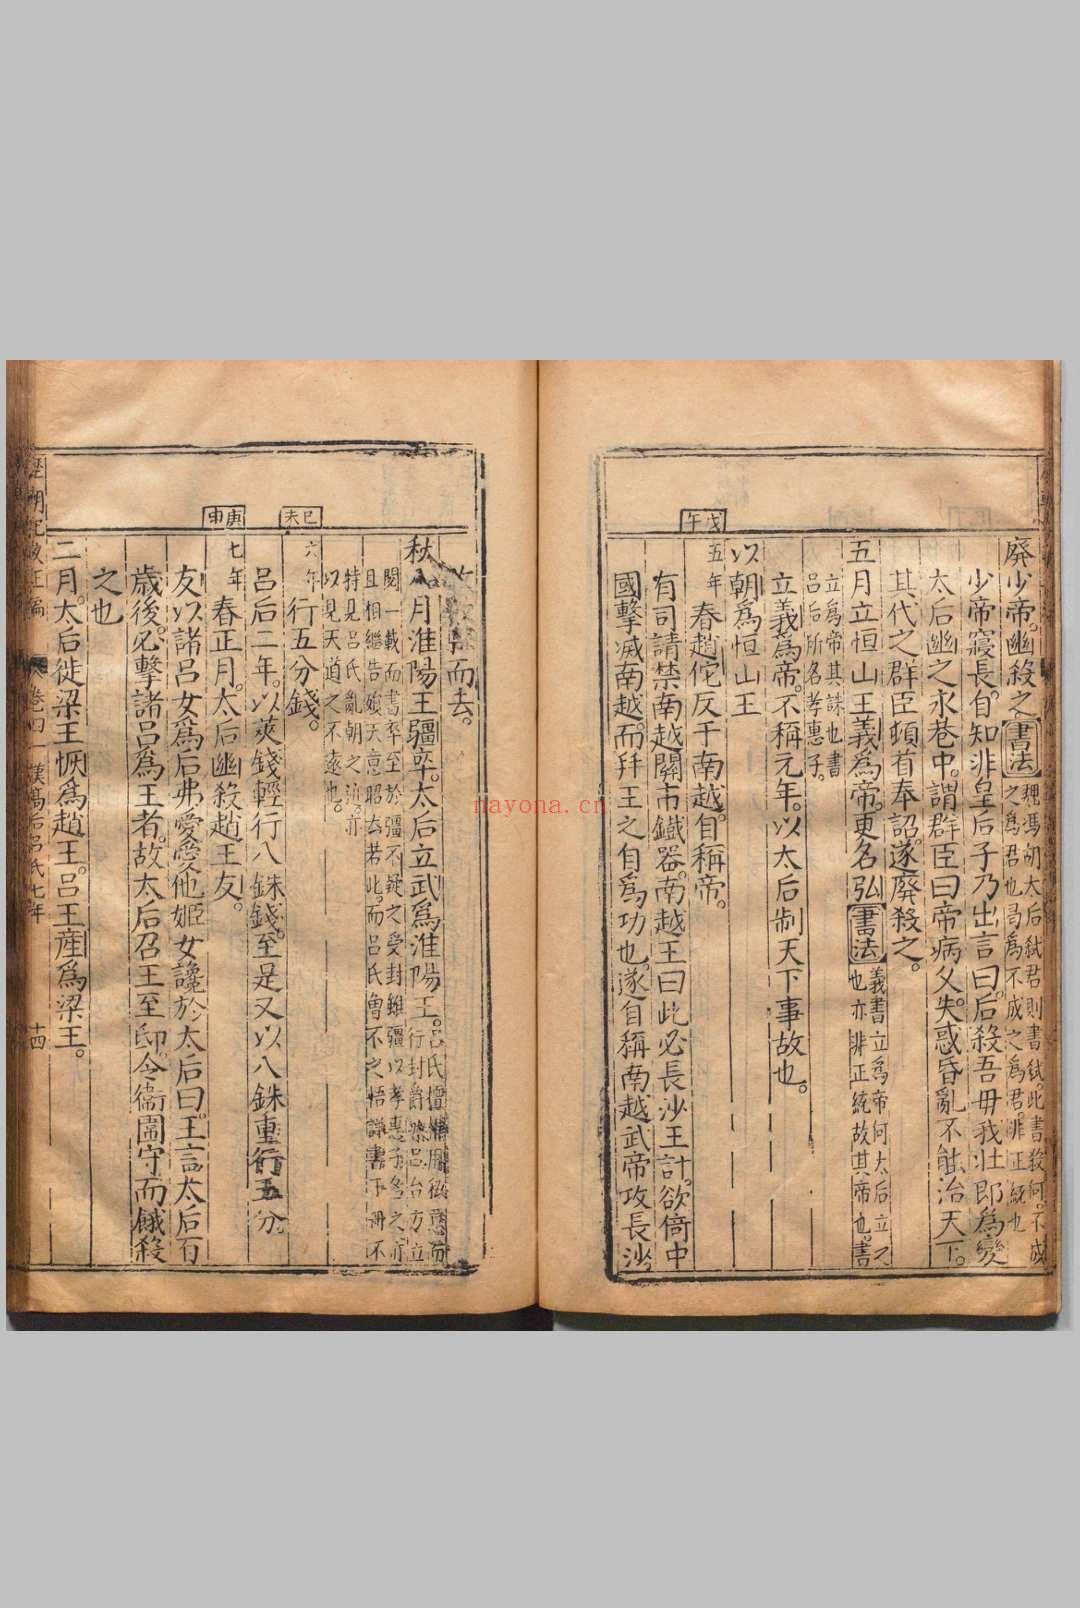 廢少帝。幽殺之【書法】
魏馮胡太后弒君則書弒。此書殺何。不成
之為君也。曷為不成之為君。非正統也
少帝寖長。自知非皇后子乃出言曰。后殺吾母我壯即為變
太后幽之永巷中。謂群臣曰帝病久。失惑昏亂不能治天下。
其代之群臣頓首奉詔。遂廢殺之。
五月立恒山王義為帝。更名弘【書法】
義書立為帝何太后立
也亦非正統故其帝也。書
立為帝其誅也書
呂后所名孝惠子。
立義為帝。不稱元年。以太后制天下事故也。
以朝為恒山王
戊午
五年
春趙佗反于南越。自稱帝。
有司請禁南越關市鐵器。南越王曰此必長沙王計。欲倚中
國擊滅南越。而幷王之自為功也。遂自稱南越武帝攻長沙。
而去。
秋八月淮陽王彊卒。太后立武為淮陽王。
呂氏擅
行封爵
閱一載而書卒至於彊不疑之受封雖彊以孝惠子名之。亦
且相繼告殞天意昭大若此。而呂氏曾不之悟
特見呂氏亂朝之
以見天道之不遠也。
己未
六年
行五分錢。
呂后二年。以莢錢輕行八銖錢。至是又以八銖重行五分。
庚申
七年
春正月。太后幽殺趙王友。
友以諸呂女為后弗愛愛他姬女讒於太后曰。王言太后百
歲後。必擊諸呂為王者。故太后召王至邸。令衛圍守而餓殺
之也
二月。太后徙梁王恢為趙王。呂王產為梁王。
卷四 漢高后呂氏七年
十四
nayona.cn